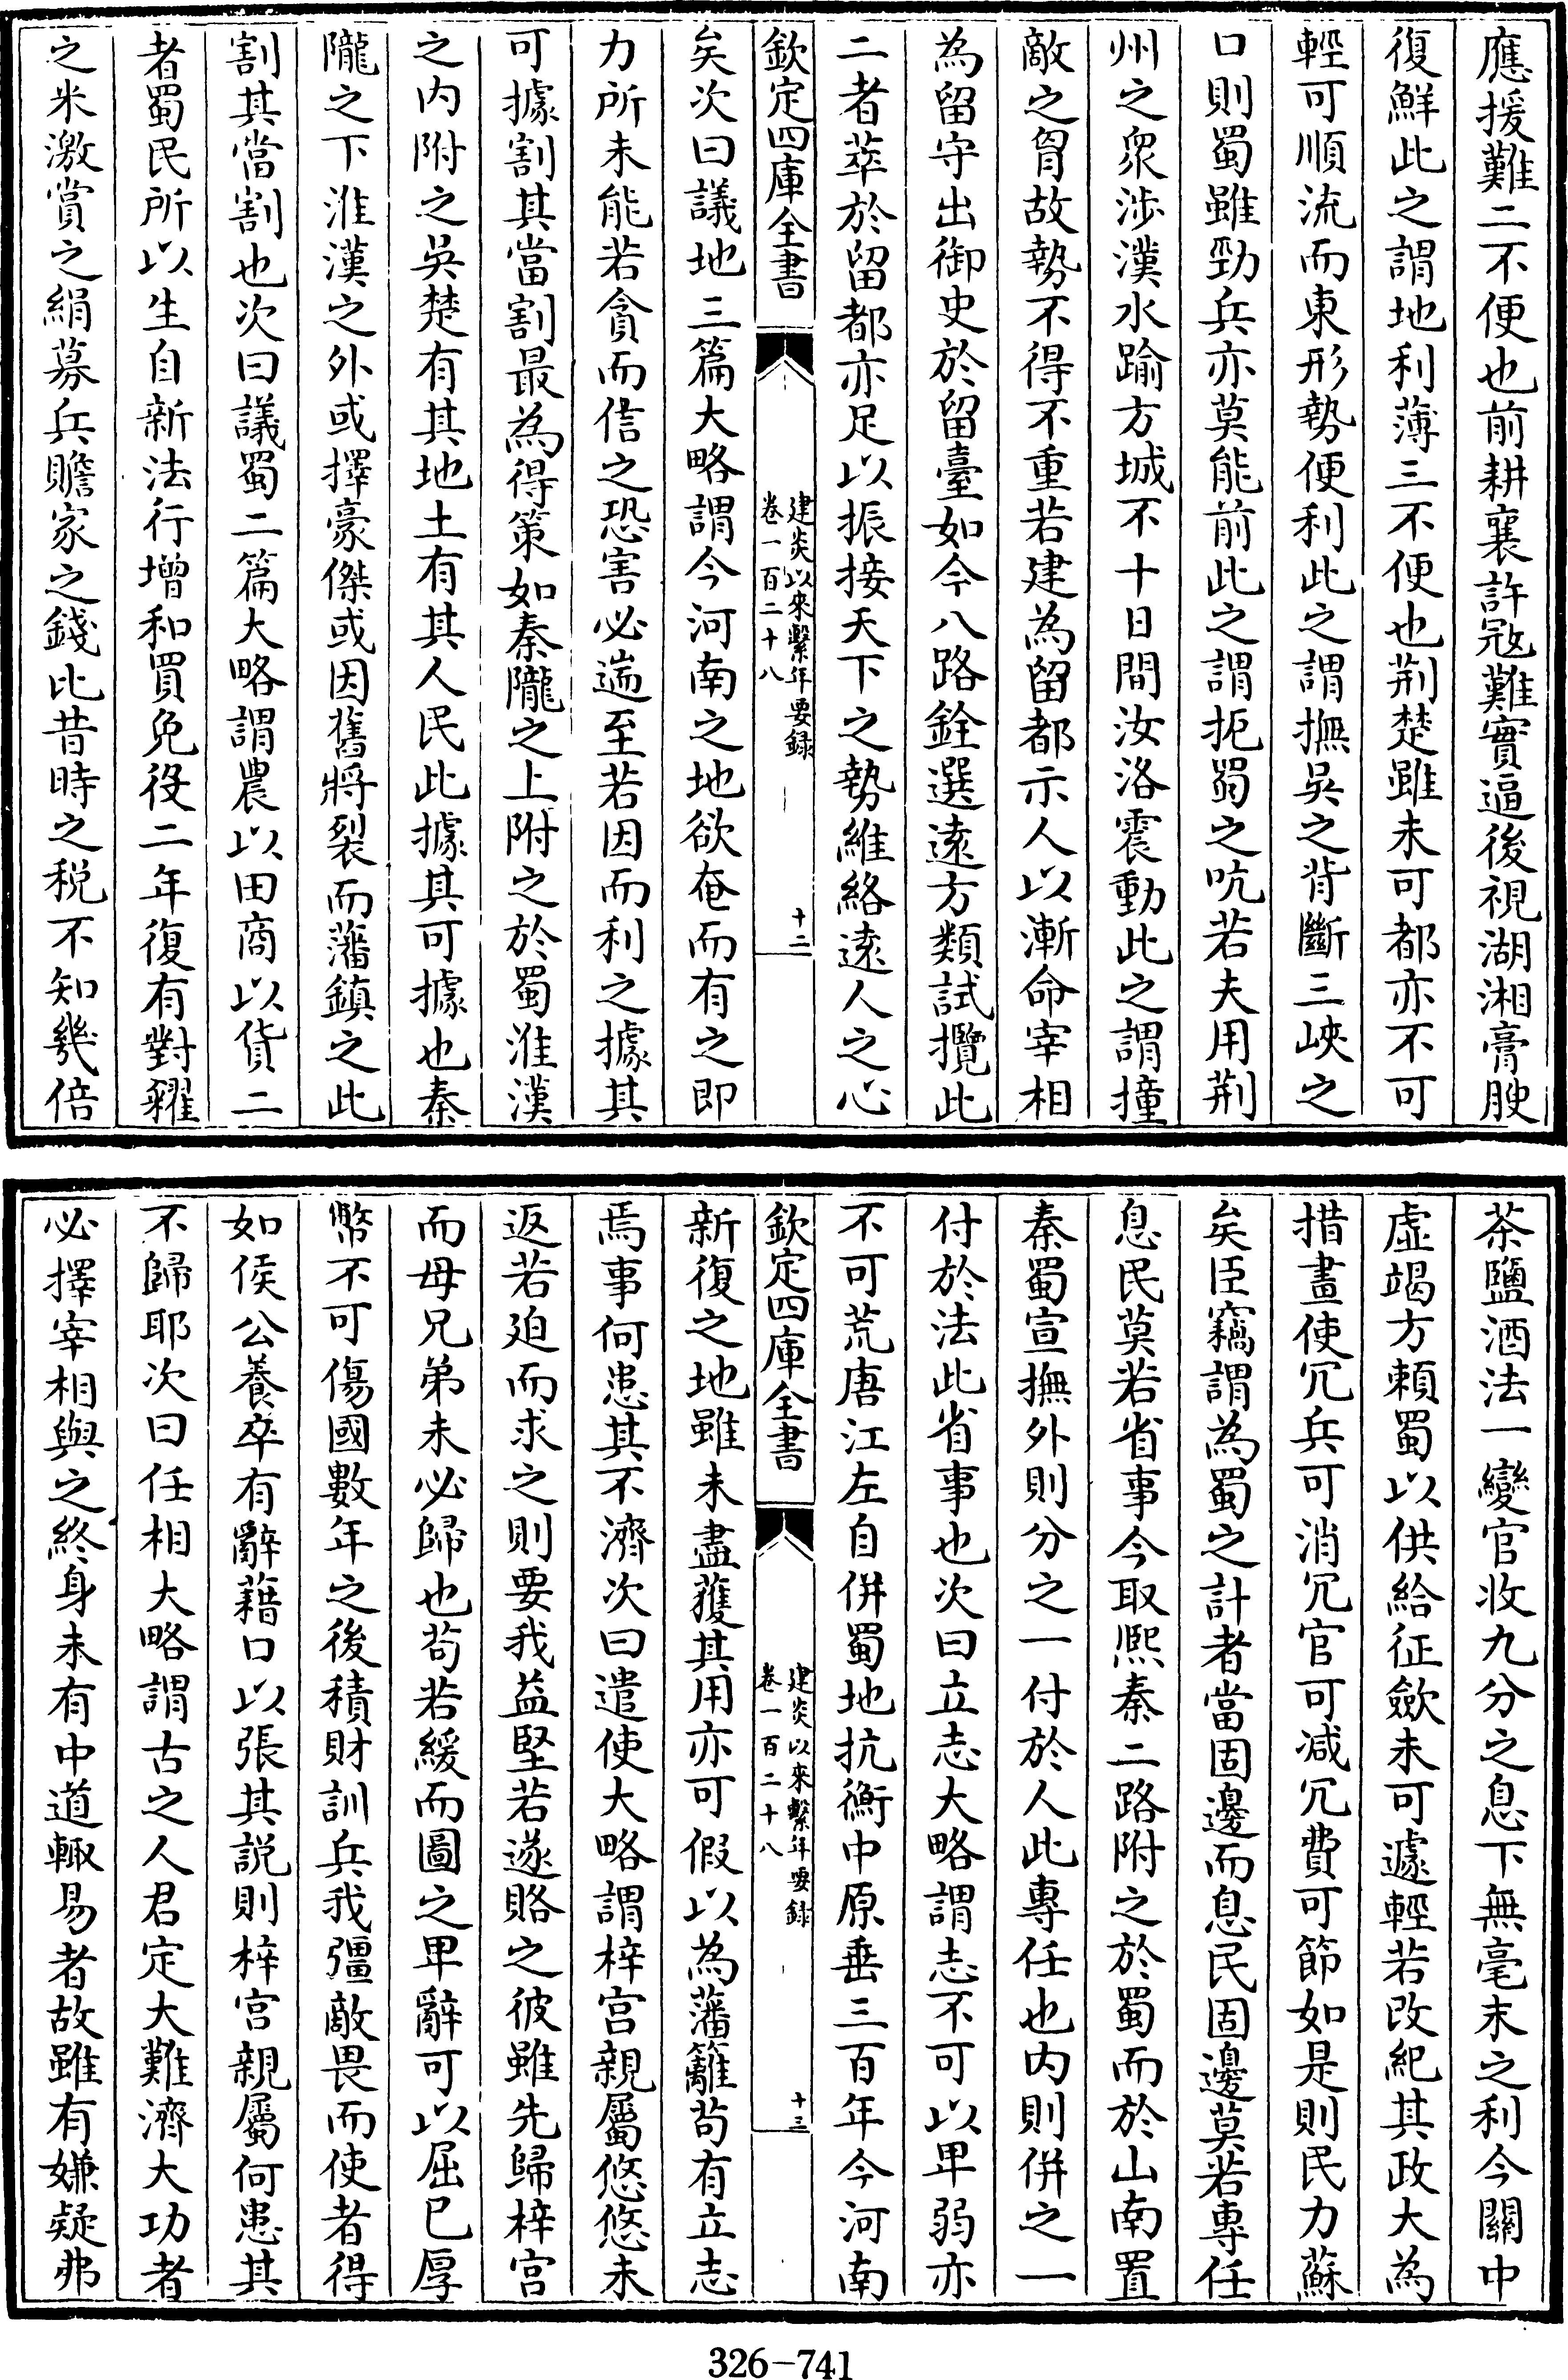 應援難二不便也前耕襄許寇難實逼後視湖湘膏腴
復鮮此之謂地利薄三不便也荆楚雖未可都亦不可
輕可順流而東形勢便利此之謂撫吳之背斷三峽之
口則蜀雖勁兵亦莫能前此之謂扼蜀之吭若夫用荆
州之衆涉漢水踰方城不十日間汝洛震動此之謂撞
敵之胷故勢不得不重若建為留都示人以漸命宰相
為留守出御史於留臺如今八路銓選遠方類試攬此
二者萃於留都亦足以振接天下之勢維絡遠人之心
欽定四庫全書
建炎以來繫年要録
卷一百二十八
十二
矣次曰議地三篇大略謂今河南之地欲奄而有之即
力所未能若貪而信之恐害必遄至若因而利之據其
可據割其當割最為得策如秦隴之上附之於蜀淮漢
之内附之吳楚有其地土有其人民此據其可據也秦
隴之下淮漢之外或擇豪傑或因舊將裂而藩鎮之此
割其當割也次曰議蜀二篇大略謂農以田商以貨二
者蜀民所以生自新法行增和買免役二年復有對糴
之米激賞之絹募兵贍家之錢比昔時之税不知幾倍
茶鹽酒法一變官收九分之息下無毫末之利今關中
虛竭方賴蜀以供給征歛未可遽輕若改紀其政大為
措畫使冗兵可消冗官可减冗費可節如是則民力蘇
矣臣竊謂為蜀之計者當固邊而息民固邊莫若專任
息民莫若省事今取熙秦二路附之於蜀而於山南置
秦蜀宣撫外則分之一付於人此專任也内則併之一
付於法此省事也次曰立志大略謂志不可以卑弱亦
不可荒唐江左自併蜀地抗衡中原垂三百年今河南
欽定四庫全書
建炎以來繫年要録
卷一百二十八
十三
新復之地雖未盡獲其用亦可假以為藩籬苟有立志
焉事何患其不濟次曰遣使大略謂梓宫親屬悠悠未
返若廹而求之則要我益堅若遂賂之彼雖先歸梓宫
而母兄弟未必歸也苟若緩而圖之卑辭可以屈已厚
幣不可傷國數年之後積財訓兵我彊敵畏而使者得
如侯公養卒有辭藉口以張其説則梓宫親屬何患其
不歸耶次曰任相大略謂古之人君定大難濟大功者
必擇宰相與之終身未有中道輙易者故雖有嫌疑弗
326-741